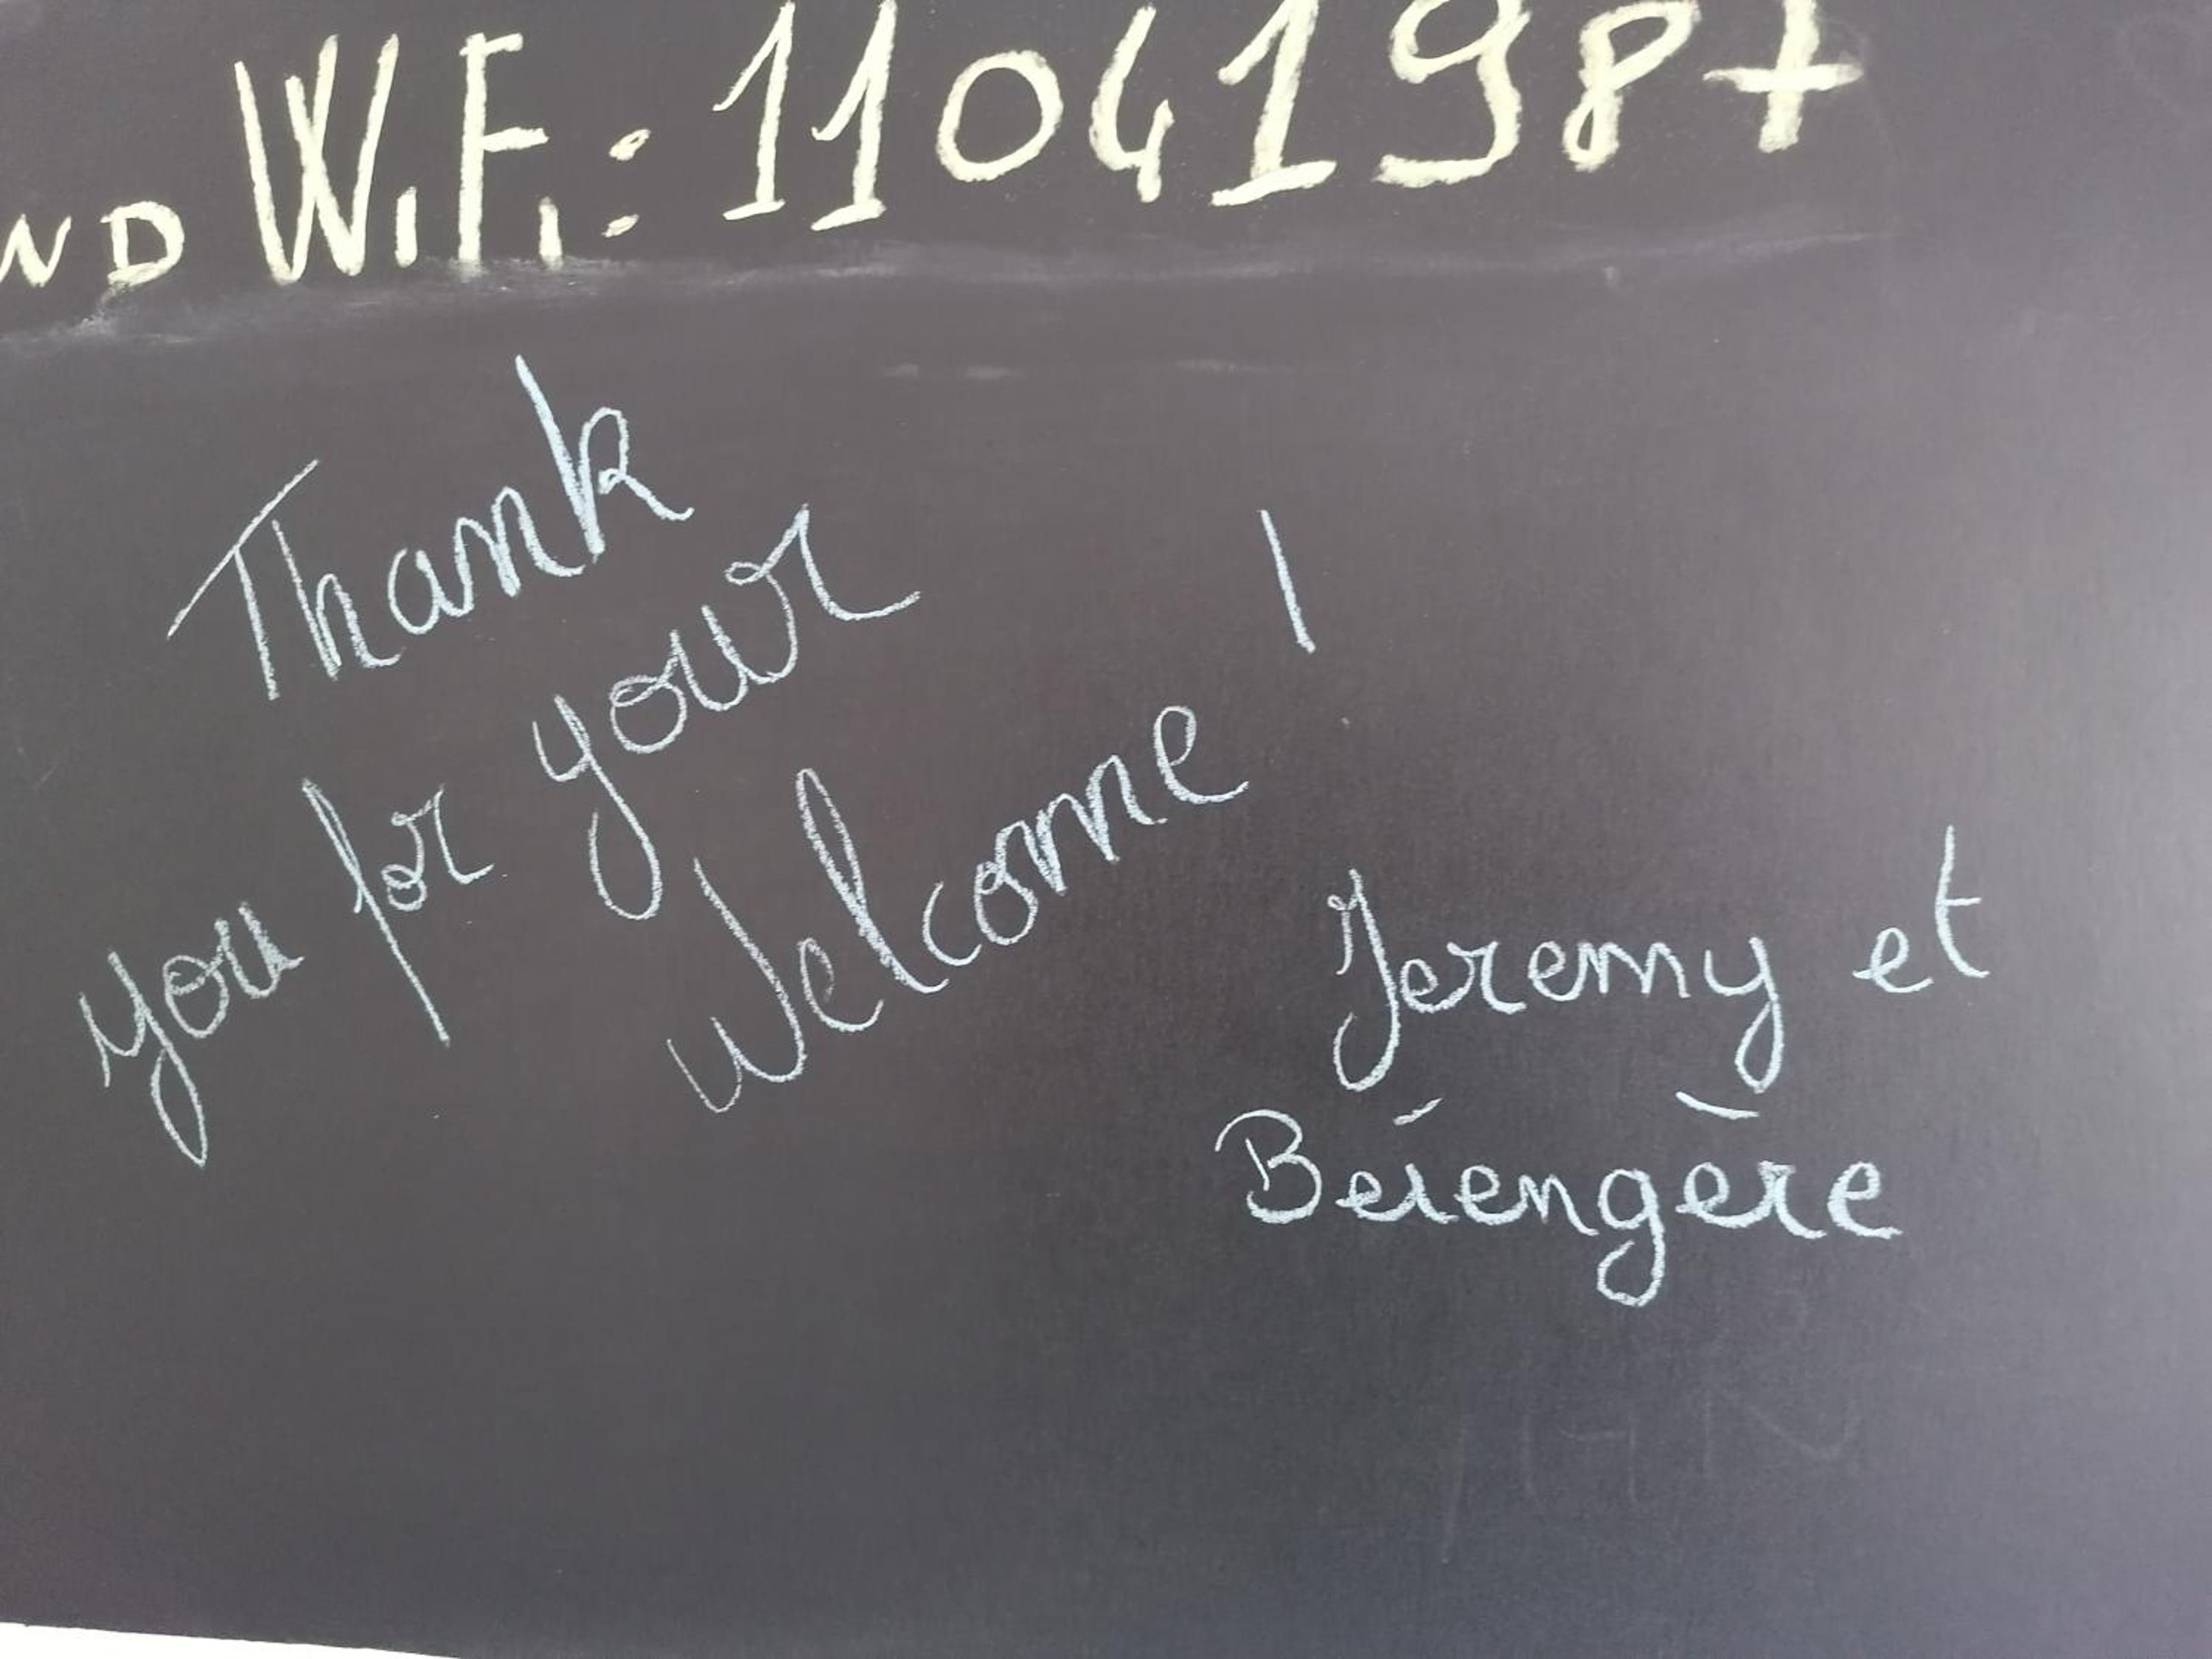 WiFi: 11041987
Thank
you for your
Welcome !
Jeremy et
Bérengère